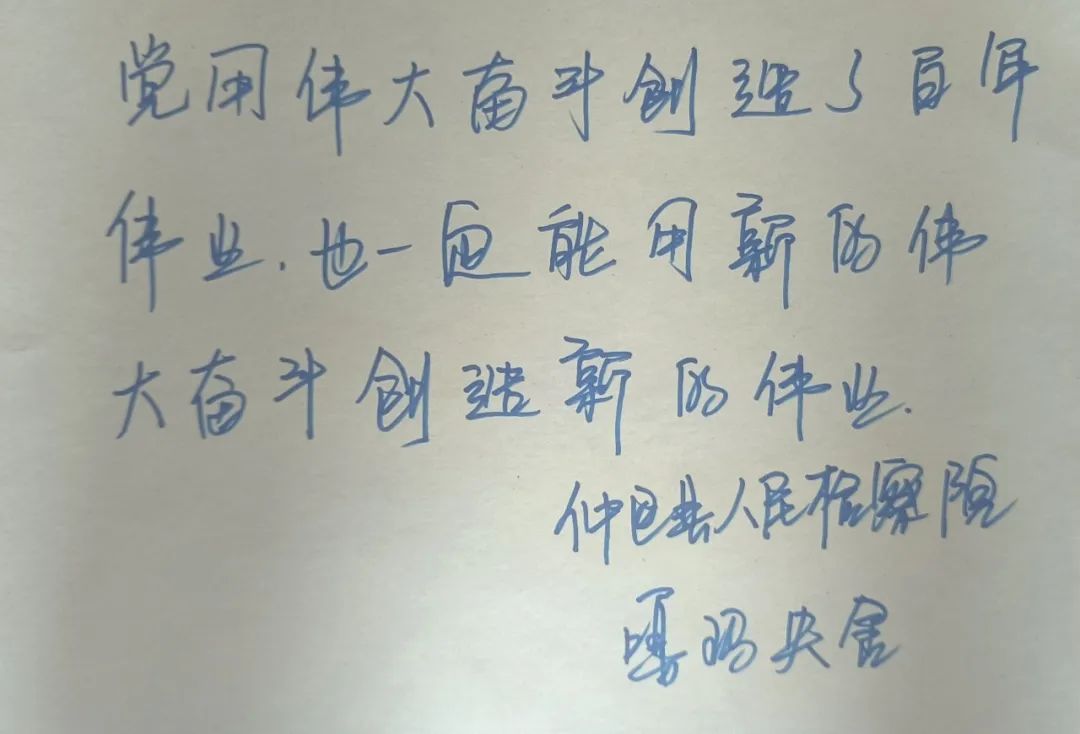 党用伟大奋斗创造了百年
伟业.也一定能用新的伟
大奋斗创造新的伟业.
仲巴县人民检察院
嘎玛央宗